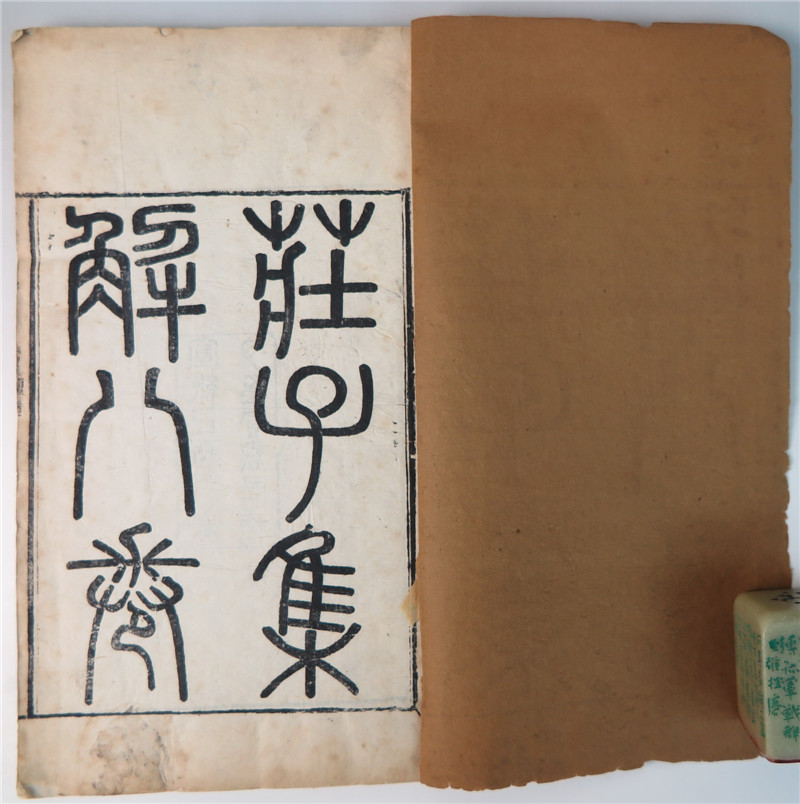 莊子集
解八卷